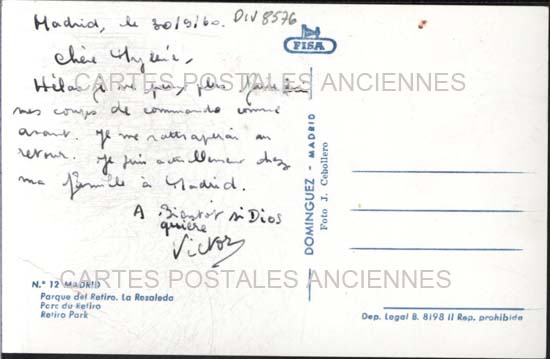 DIV 8576
Madrid, le 30/9/60.
Chère
Hélas je ne peux plus
mes coups de commande comme
avant. Je me rattraperai au
retour. Je suis actuellement chez
ma famille à Madrid.
A Bientôt si Dios
quiere
Victor
FISA
CARTES POSTALES ANCIENNES
DOMINGUEZ - MADRID
Foto J. Cebollero
CARTES POSTALES ANCIENNES
N.º 12 MADRID
Parque del Retiro. La Rosaleda
Parc du Retiro
Retiro Park
Dep. Legal B. 8198 II Rep. prohibida